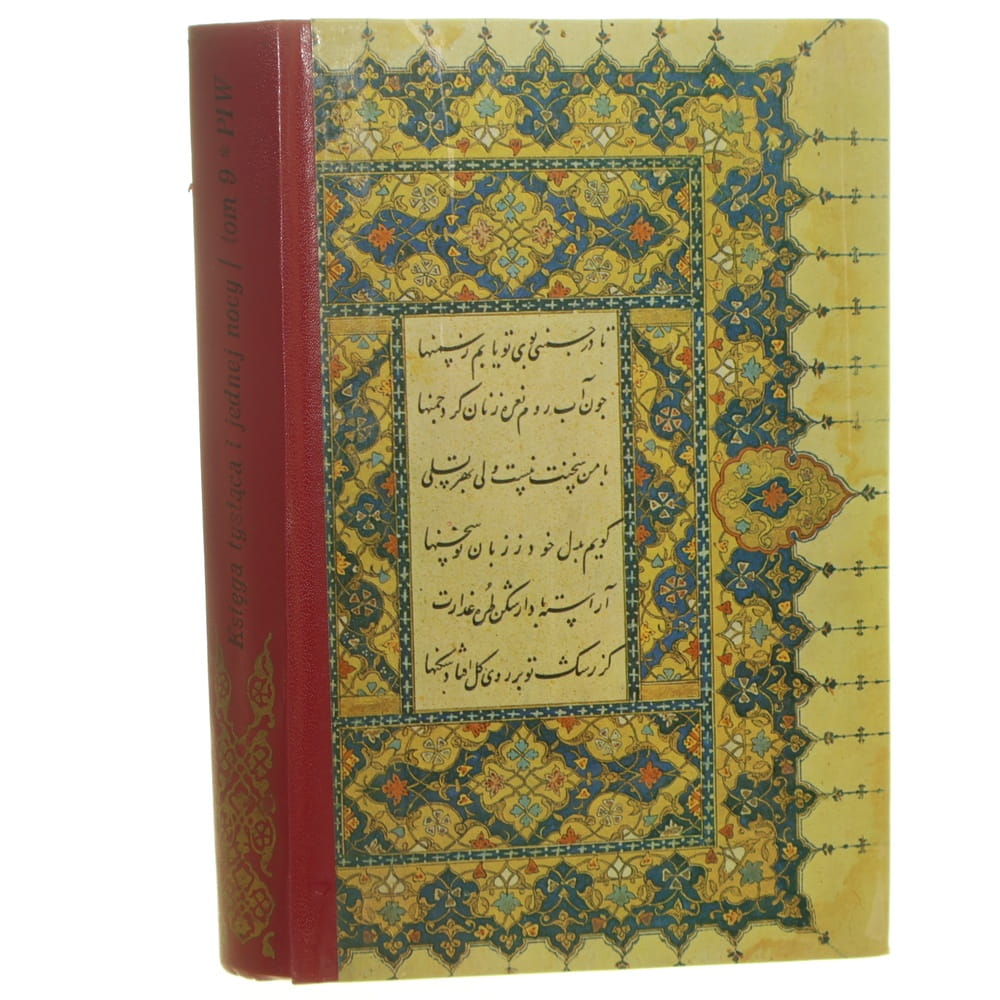 Księga tysiąca i jednej nocy / tom 9 * PIW
تا در جستن بوی تو یابم رسمنها
جون آب روم نعره زنان کرد جمنها
با من سخنت نیست ولی بهر تسلی
کویم بدل خود ز زبان تو سخنها
آراسته با دار شکن طره عذارت
کز رشک تو بر روی کل افتاد شکنها